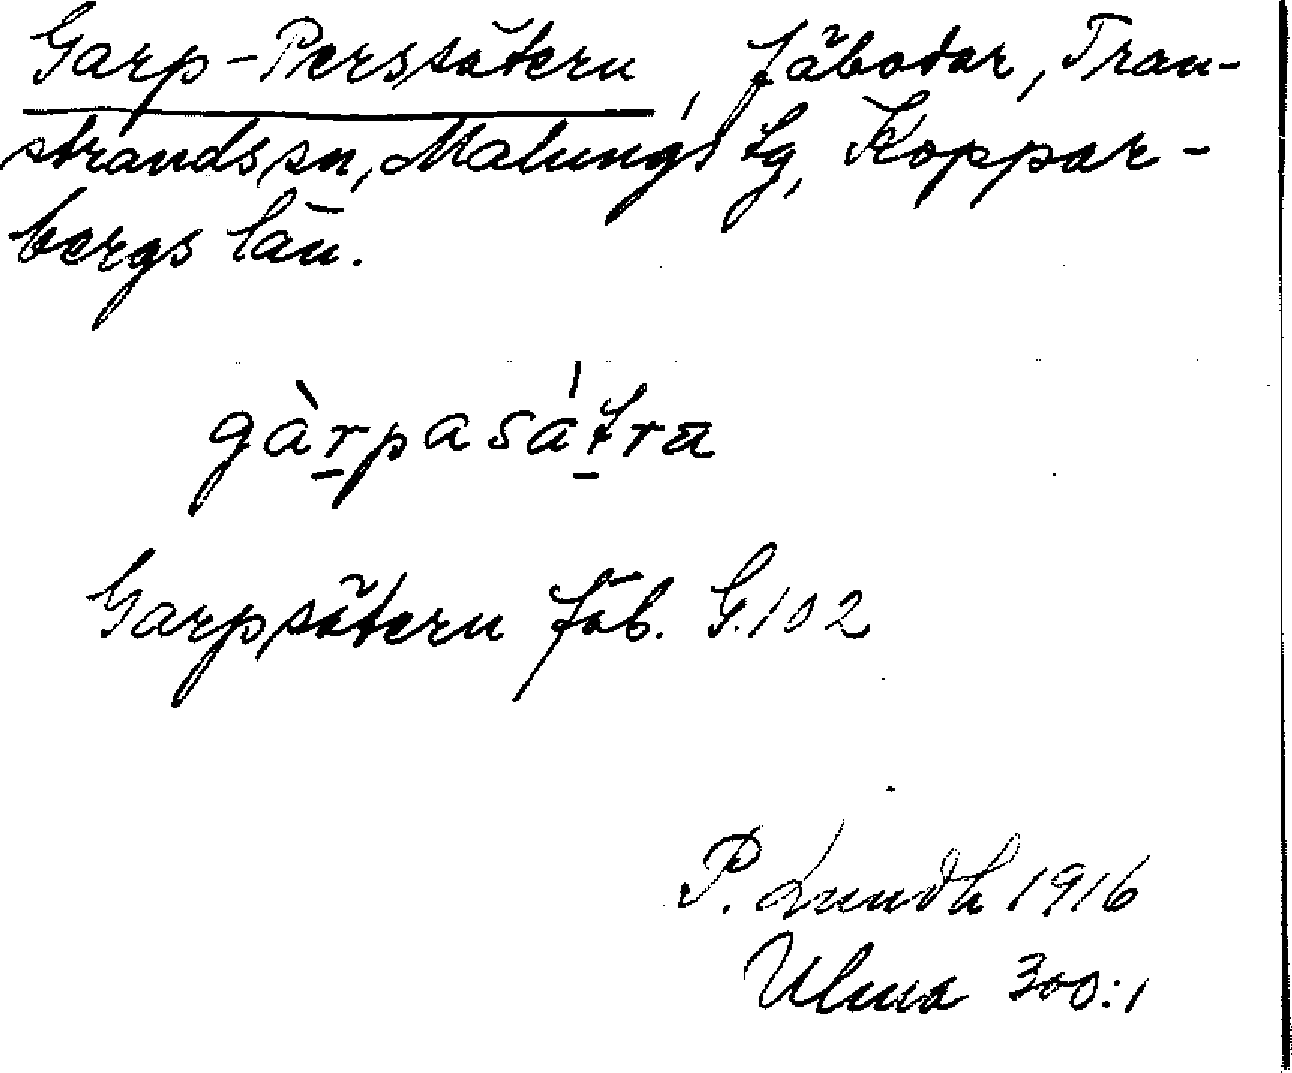 Garp-Perssätern, fäbodar, Tran-
strands sn, Malungs tg, Koppar-
bergs län.
gàrpasátra
Garpsätern fäb. G.102
P. Lundh 1916
Ulma 300:1